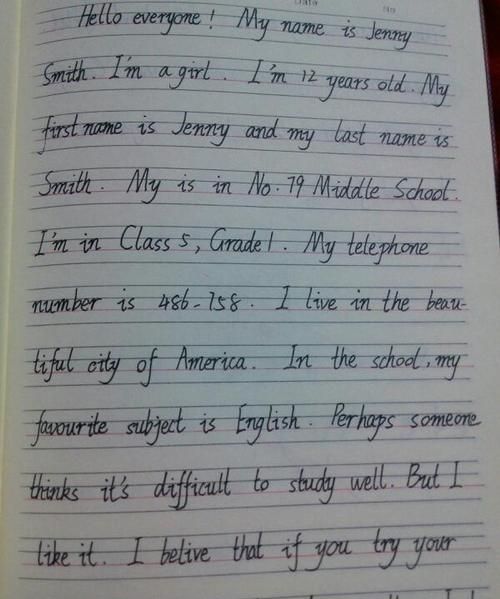 Date
No
Hello everyone! My name is Jenny
Smith. I'm a girl. I'm 12 years old. My
first name is Jenny and my last name is
Smith. My is in No.79 Middle School.
I'm in Class 5, Grade 1. My telephone
number is 486-758. I live in the beau-
tiful city of America. In the school, my
favourite subject is English. Perhaps someone
thinks it's difficult to study well. But I
like it. I belive that if you try your